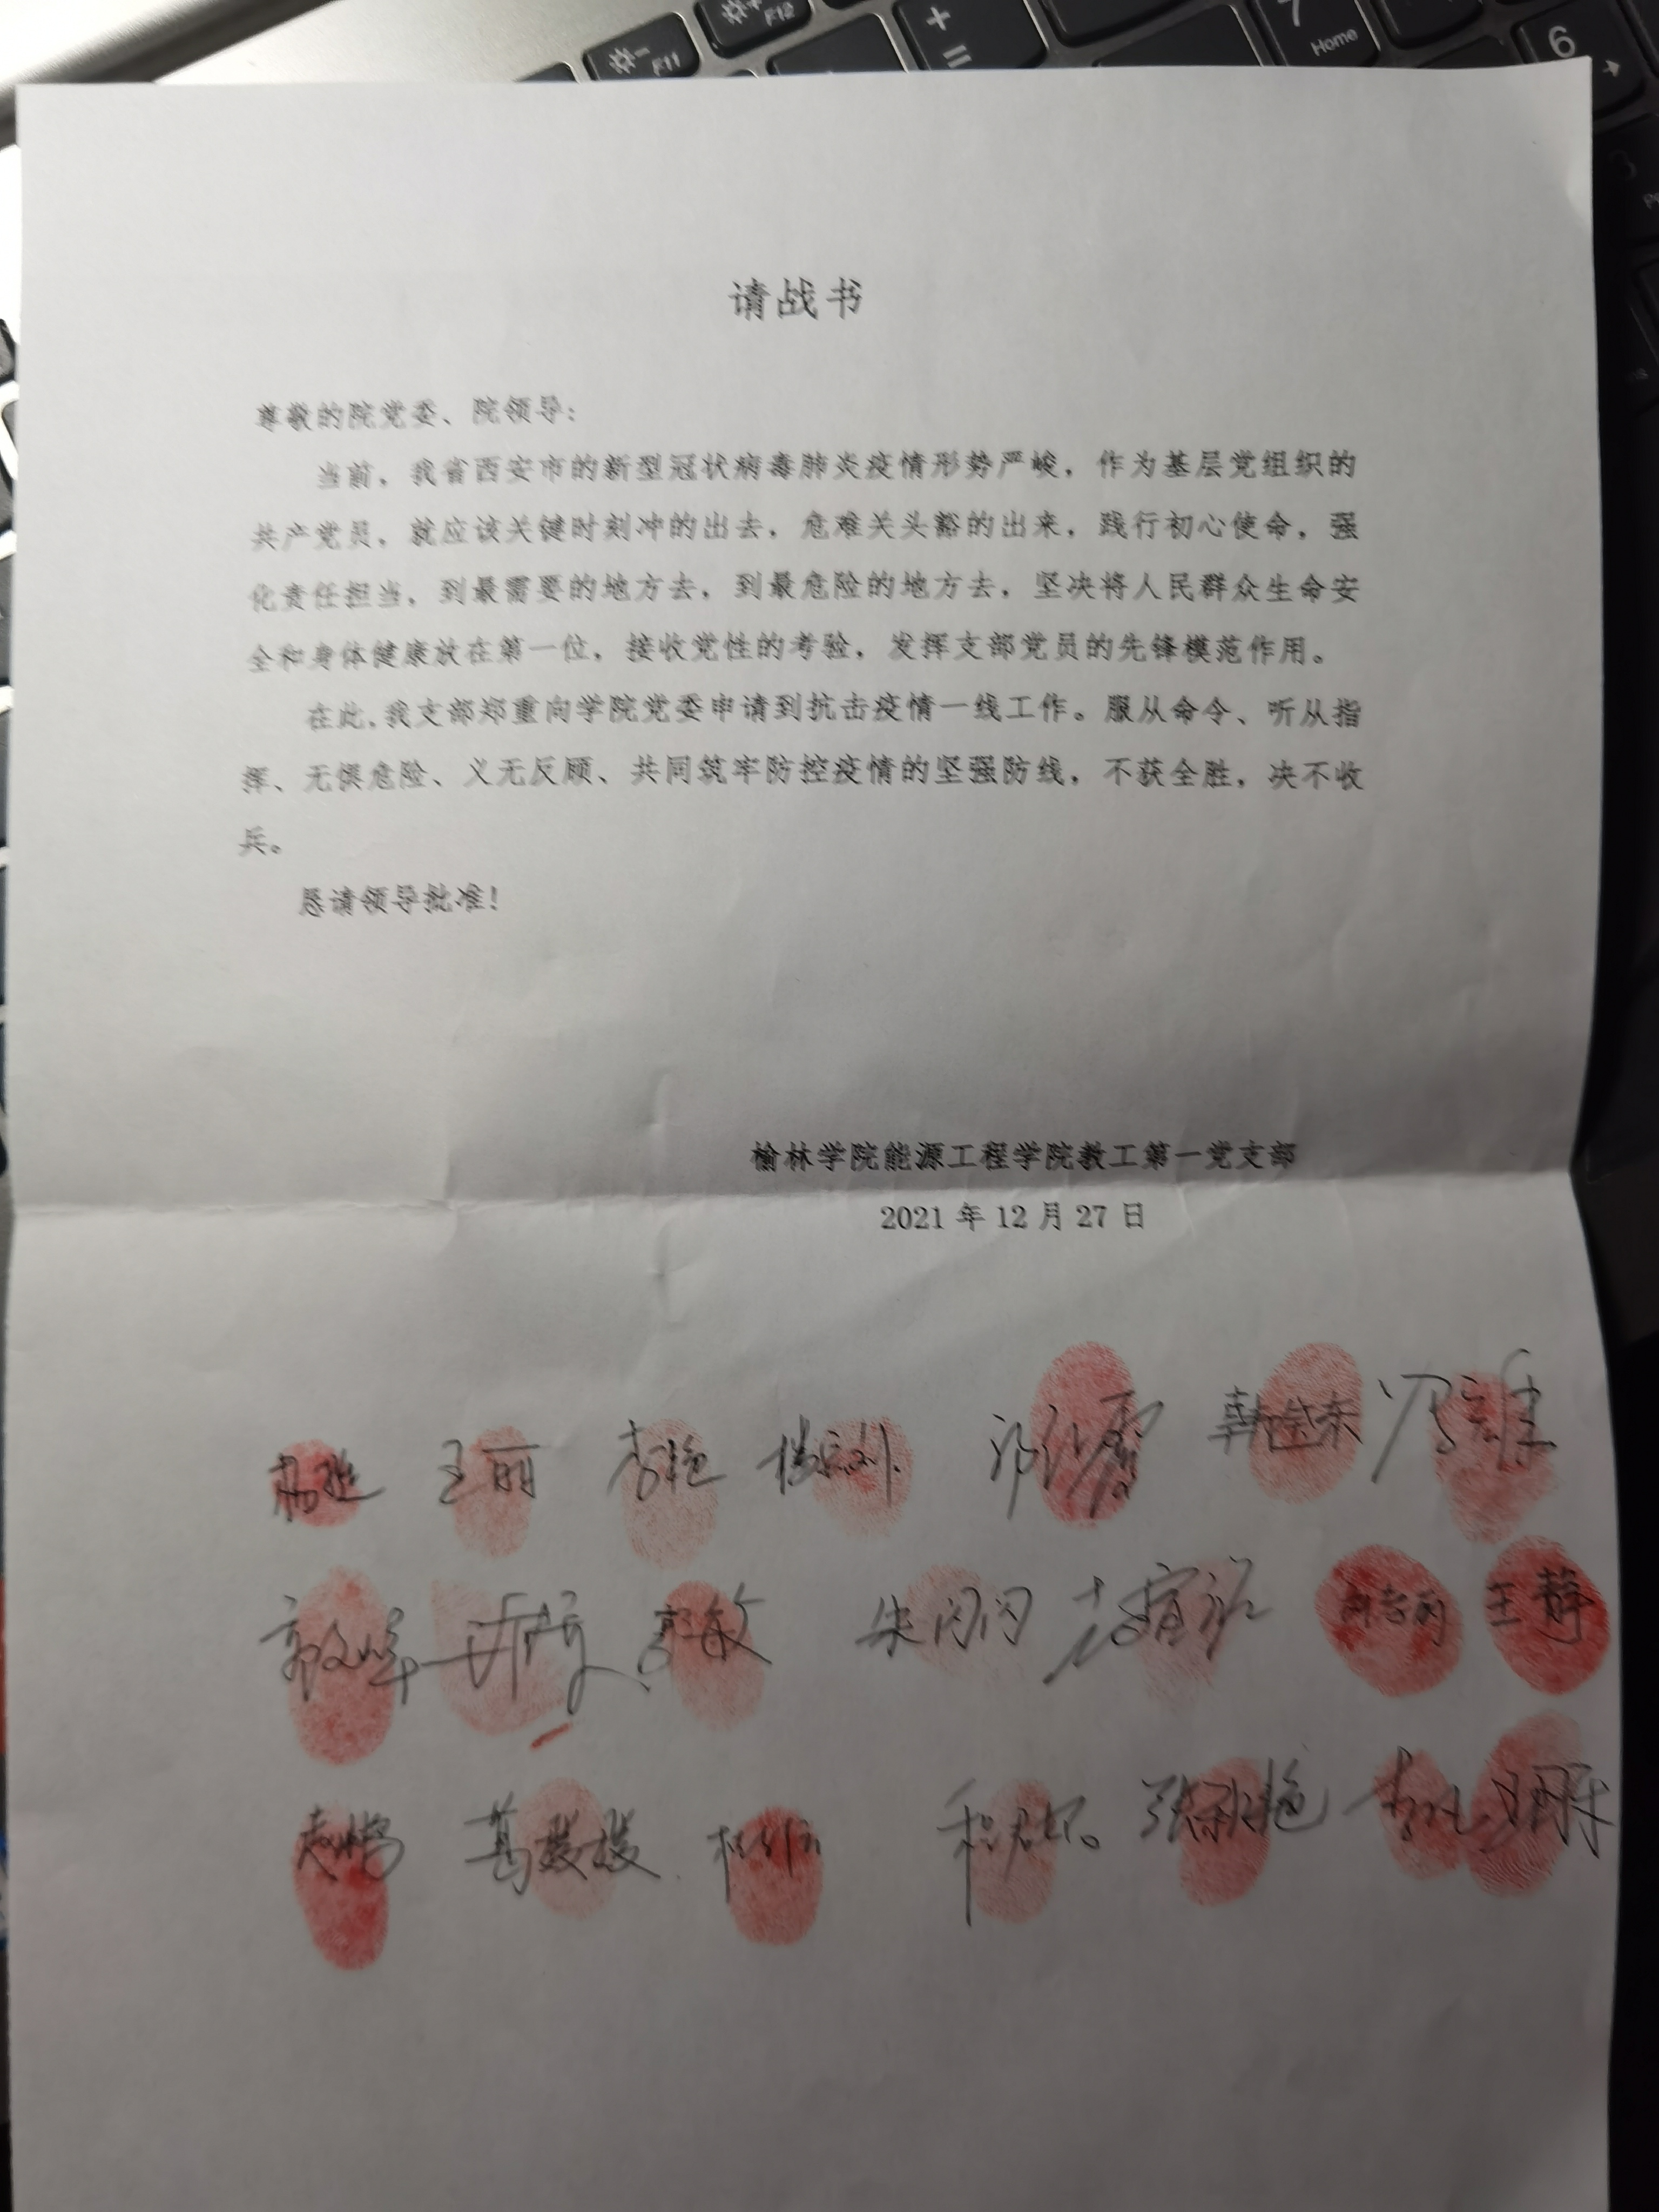 F11
F12
+
=
7
Home
6
请战书
尊敬的院党委、院领导：
当前，我省西安市的新型冠状病毒肺炎疫情形势严峻，作为基层党组织的
共产党员，就应该关键时刻冲的出去，危难关头豁的出来，践行初心使命，强
化责任担当，到最需要的地方去，到最危险的地方去，坚决将人民群众生命安
全和身体健康放在第一位，接收党性的考验，发挥支部党员的先锋模范作用。
在此，我支部郑重向学院党委申请到抗击疫情一线工作。服从命令、听从指
挥、无惧危险、义无反顾、共同筑牢防控疫情的坚强防线，不获全胜，决不收
兵。
恳请领导批准！
榆林学院能源工程学院教工第一党支部
2021 年 12 月 27 日
王丽 李艳
郭敏 朱闪闪 王静
葛媛媛